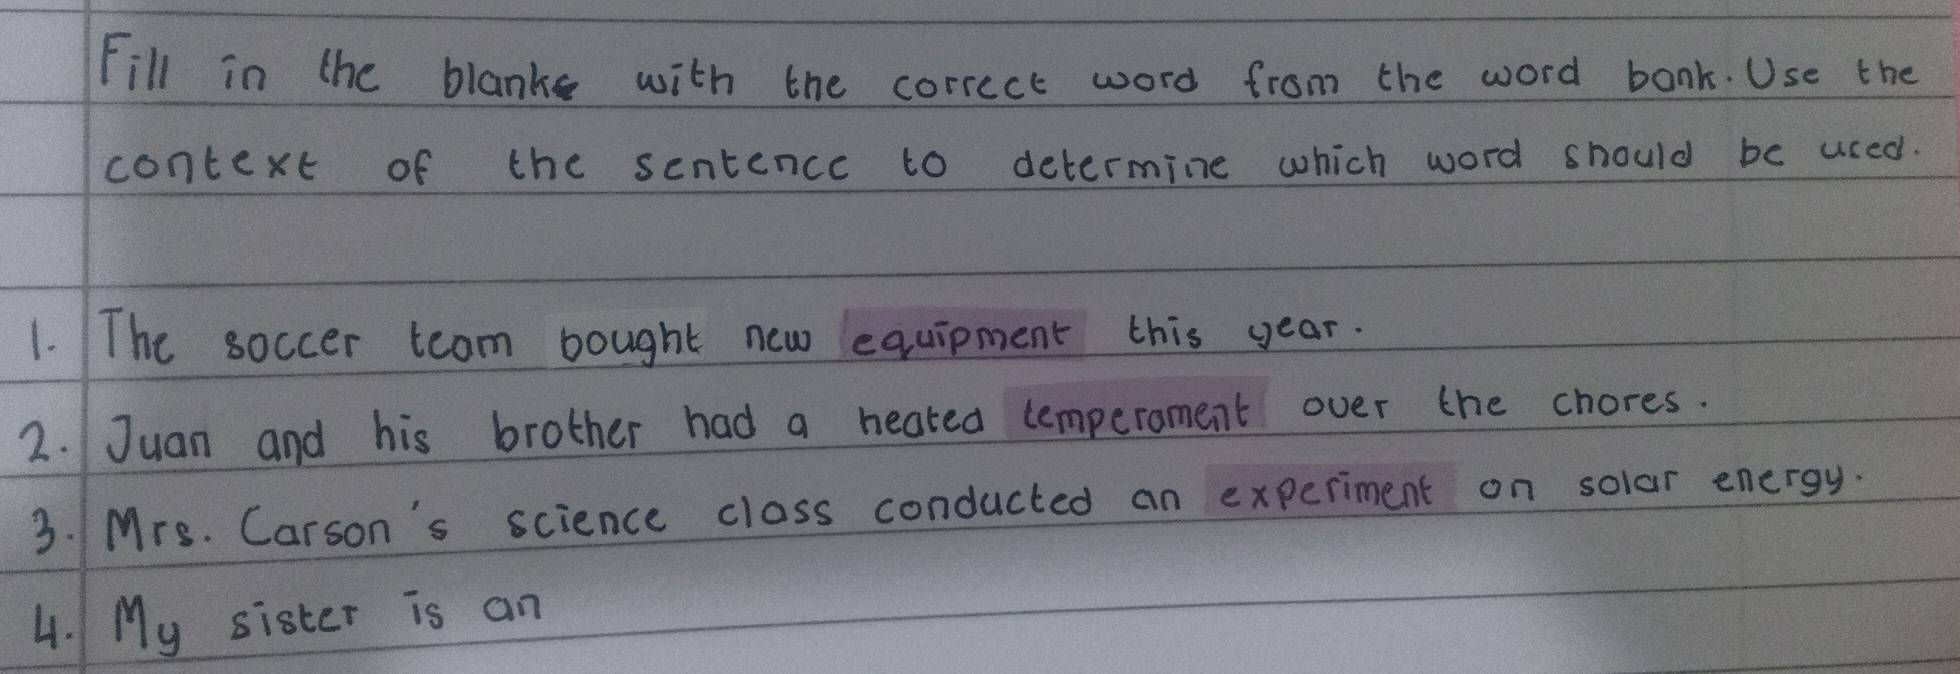 Fill in the blanks with the correct word from the word bank. Use the
context of the sentence to determine which word should be used.
1. The soccer team bought new equipment this year.
2. Juan and his brother had a heated temperament over the chores.
3. Mrs. Carson's science class conducted an experiment on solar energy.
4. My sister is an